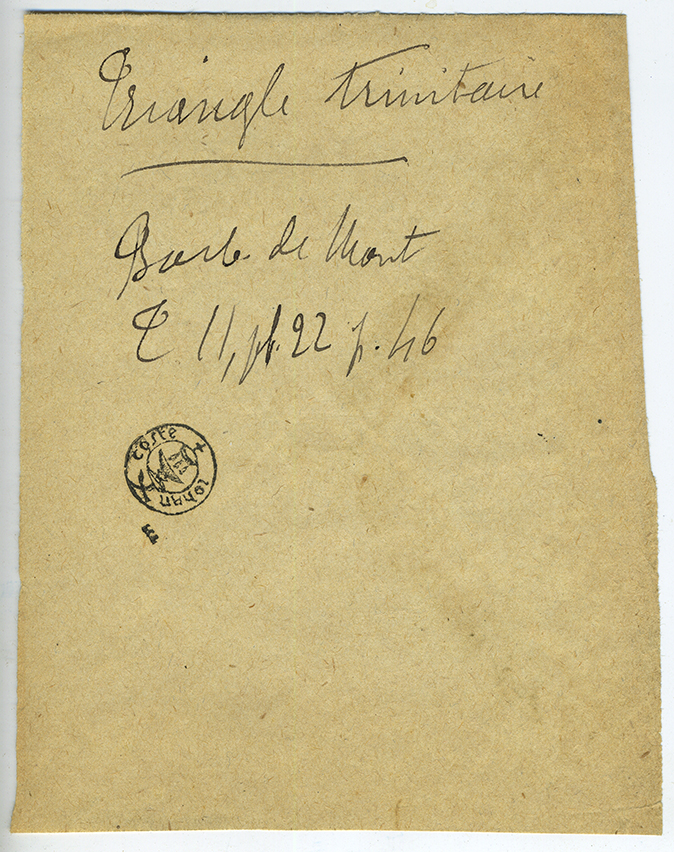 Triangle trinitaire
Barb. de Mont
T 11, pl. 22 p. 46
coste + zohan